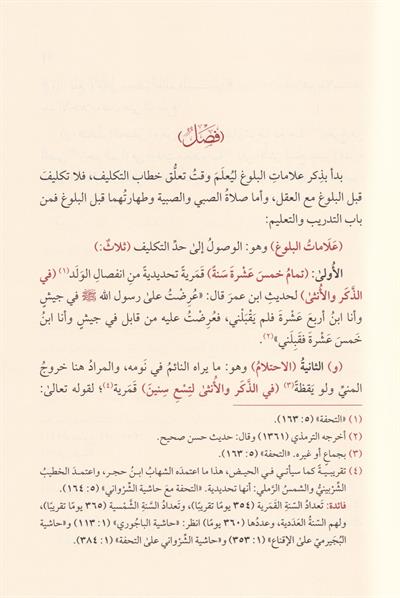 (فَصْلٌ)
بدأ بذِكر علاماتِ البلوغ ليُعلَمَ وقتُ تعلُّق خطاب التكليف، فلا تكليفَ
قبل البلوغ مع العقل، وأما صلاةُ الصبي والصبية وطهارتُهما قبل البلوغ فمن
باب التدريب والتعليم:
(عَلَامَاتُ البلوغ) وهو: الوصولُ إلىٰ حدِّ التكليف (ثلاثٌ:)
الأُولىٰ: (تمامُ خمسَ عَشْرةَ سَنةً) قَمَريةً تحديديةً منِ انفصالِ الوَلَد(١) (في
الذَّكَر والأُنثىٰ) لحديثِ ابن عمرَ قال: «عُرِضْتُ علىٰ رسول الله ﷺ في جيشٍ
وأنا ابنُ أربعَ عَشْرةَ فلم يَقْبَلْني، فعُرِضْتُ عليه من قابل في جيشٍ وأنا ابنُ
خَمسَ عَشْرةَ فقَبِلَني»(٢).
(و) الثانيةُ (الاحتلامُ) وهو: ما يراه النائمُ في نَومه، والمرادُ هنا خروجُ
المنيِّ ولو يَقَظةً(٣) (في الذَّكَر والأُنثىٰ لتِسْعِ سِنينَ) قَمَرية(٤)؛ لقوله تعالىٰ:
(١) «التحفة» (٥: ١٦٣).
(٢) أخرجه الترمذي (١٣٦١) وقال: حديث حسن صحيح.
(٣) بجماعٍ أو غيره. «التحفة» (٥: ١٦٣).
(٤) تقريبيـةً كما سيأتـي فـي الحيـض، هذا ما اعتمدَه الشهابُ ابنُ حجـر، واعتمدَ الخطيبُ
الشِّربِينيُّ والشمسُ الرَّملي: أنها تحديدية. «التحفة معَ حاشية الشَّرْواني» (٥: ١٦٤).
فائدة: تَعدادُ السنَةِ القَمَرية (٣٥٤ يومًا تقريبًا)، وتَعدادُ السنَةِ الشَّمْسية (٣٦٥ يومًا تقريبًا)،
ولهم السّنةُ العَدَدية، وعددُها (٣٦٠ يومًا) انظر: «حاشية الباجُوري» (١: ١١٣) و«حاشية
البُجَيرمي علىٰ الإقناع» (١: ٣٥٣) و«حاشية الشَّرْواني علىٰ التحفة» (١: ٣٨٤).